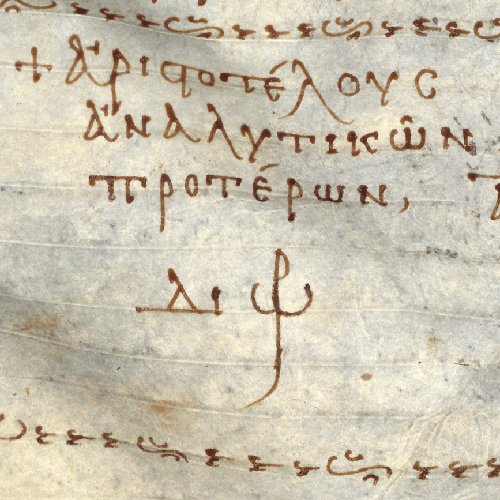 + Ἀριϛοτέλους
ἀναλυτικῶν
προτέρων,